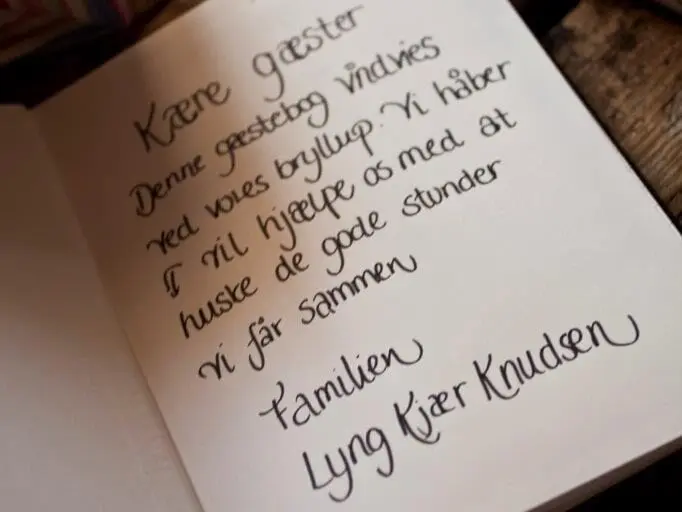 Kære gæster
Denne gæstebog vindvies
ved vores bryllup. Vi håber
I vil hjælpe os med at
huske de gode stunder
vi får sammen
Familien
Lyng Kjær Knudsen